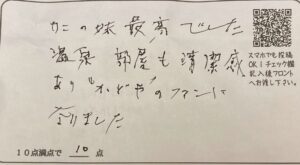 カニの味最高でした
温泉 部屋も清潔感
あり"みやや"のファンに
なりました
スマホでも投稿
OK!チェック欄
記入後フロント
へお渡し下さい。
10点満点で 10 点